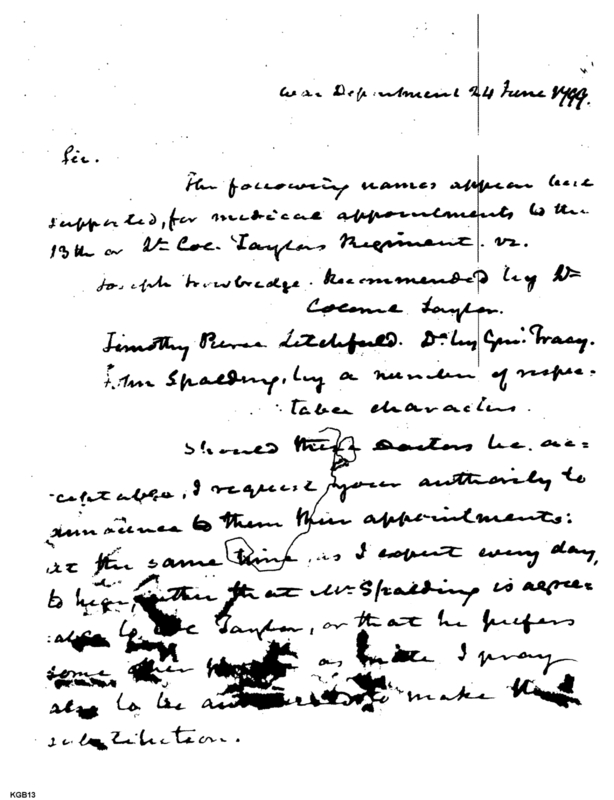 War Department 24 June 1799.
Sir.
The following names appear best
supported, for medical appointments to the
13th or Lt Col. Taylors Regiment. vz.
Joseph Trowbredge. Recommended by Lt
Colonel Taylor.
Timothy Pierce Litchfield. Do by Genl. Tracy.
John Spalding, by a number of respec=
table characters.
Should these Doctors be ac=
ceptable, I request your authority to
announce to them their appointments:
at the same time, as I expect every day,
to hear, either that Mr Spalding is agree=
able to Col Taylor, or that he prefers
some other as mate I pray
also to be authorized to make the
substitution.
KGB13